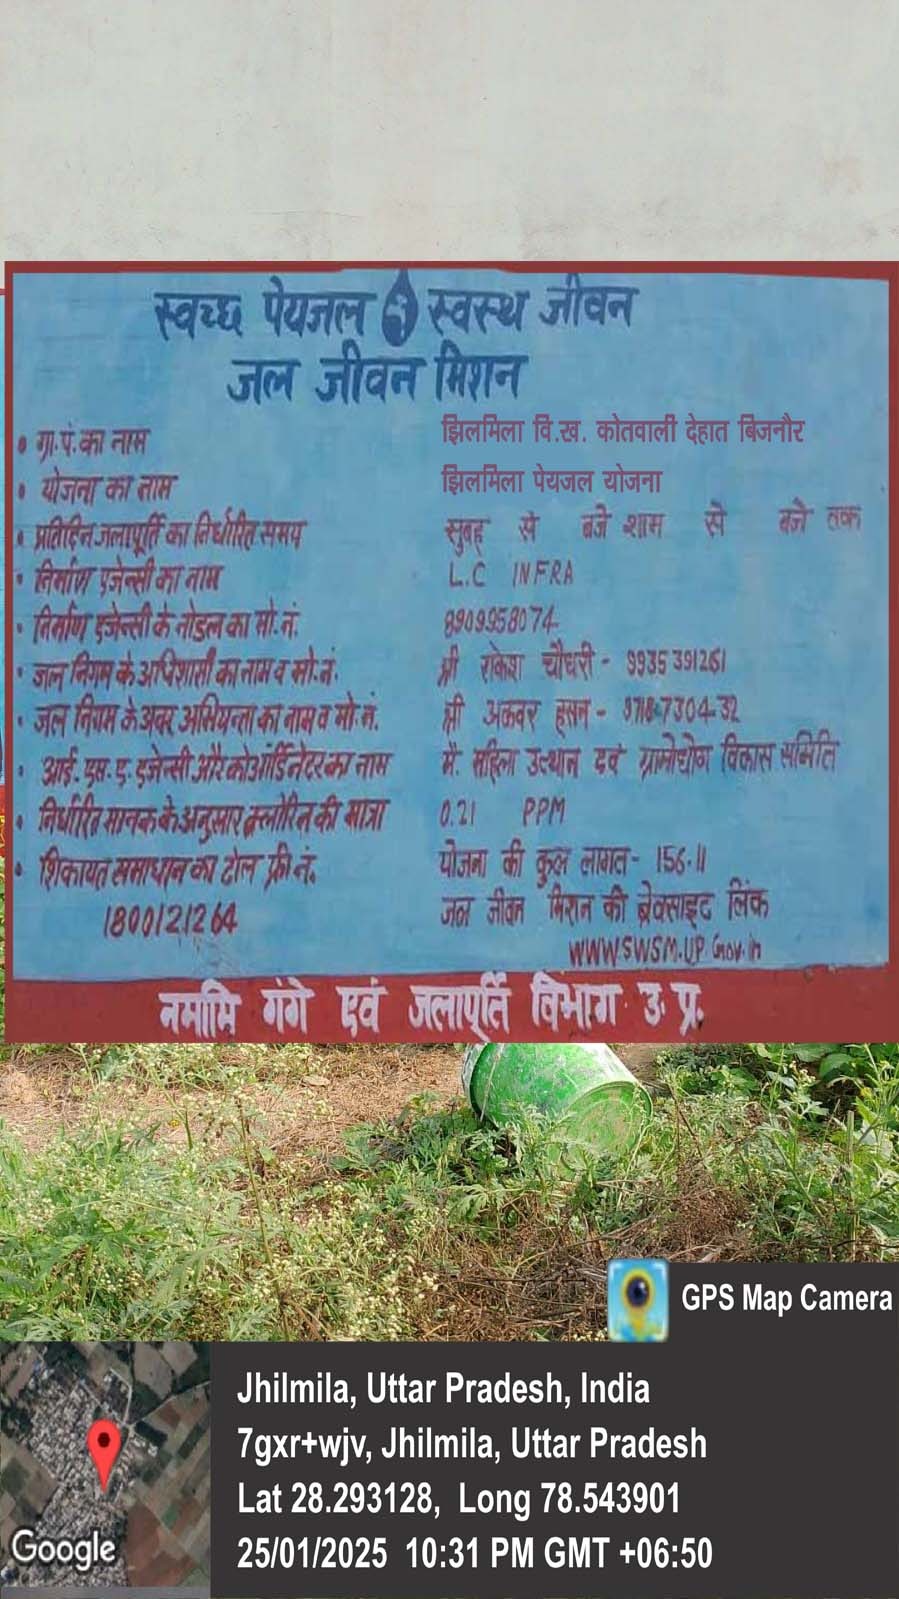 स्वच्छ पेयजल स्वस्थ जीवन
जल जीवन मिशन
• ग्रा.पं.का नाम झिलमिला वि.ख. कोतवाली देहात बिजनौर
• योजना का नाम झिलमिला पेयजल योजना
• प्रतिदिन जलापूर्ति का निर्धारित समय सुबह से बजे शाम से बजे तक
• निर्माण एजेन्सी का नाम L.C INFRA
• निर्माण एजेन्सी के नोडल का मो.नं. 8909958074
• जल निगम के अधिशासी का नाम व मो.नं. श्री राकेश चौधरी - 9935391261
• जल निगम के अवर अभियन्ता का नाम व मो.नं. श्री अकबर हसन - 8718730432
• आई.एस.ए. एजेन्सी और कोऑर्डिनेटर का नाम मै. महिला उत्थान एवं ग्रामोद्योग विकास समिति
• निर्धारित मानक के अनुसार क्लोरिन की मात्रा 0.21 PPM
• शिकायत समाधान का टोल फ्री नं. योजना की कुल लागत - 156.11
1800121264 जल जीवन मिशन की बेवसाइट लिंक
WWW.SWSM.UP.Gov.in
नमामि गंगे एवं जलापूर्ति विभाग उ. प्र.
GPS Map Camera
Jhilmila, Uttar Pradesh, India
7gxr+wjv, Jhilmila, Uttar Pradesh
Lat 28.293128, Long 78.543901
25/01/2025 10:31 PM GMT +06:50
Google